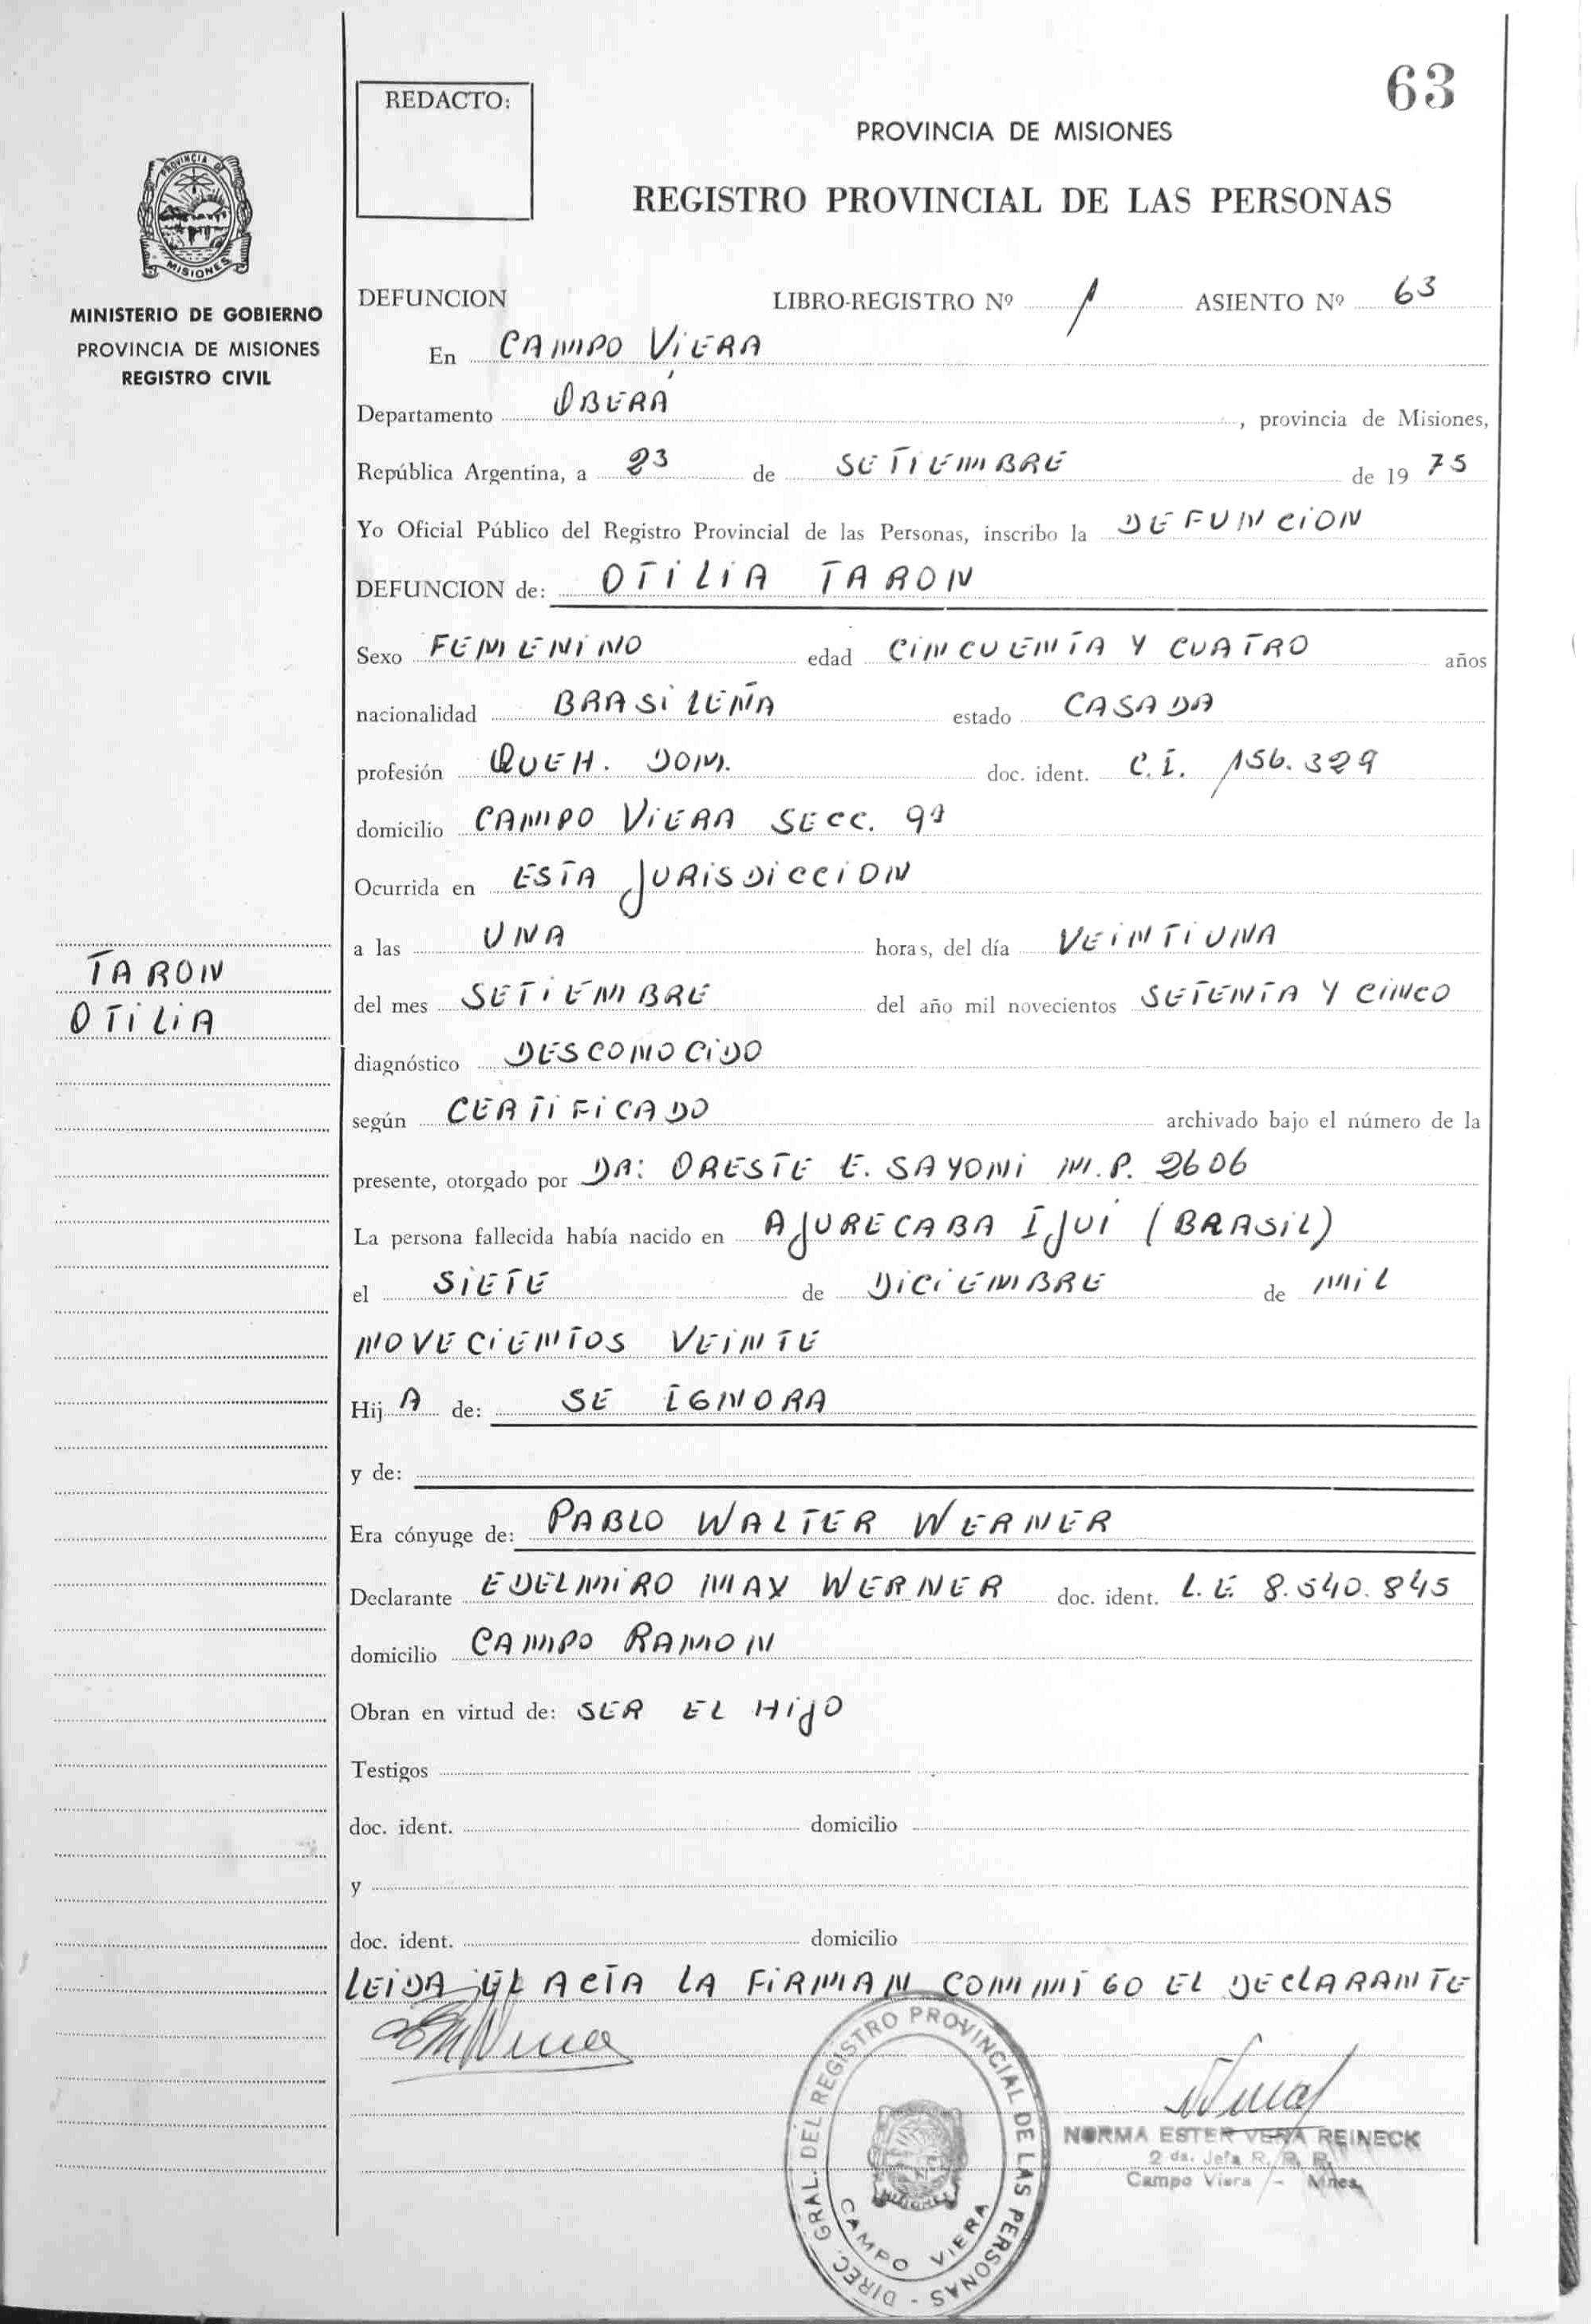 63
REDACTO:
PROVINCIA DE MISIONES
REGISTRO PROVINCIAL DE LAS PERSONAS
PROVINCIA DE
MISIONES
MINISTERIO DE GOBIERNO
PROVINCIA DE MISIONES
REGISTRO CIVIL
DEFUNCION LIBRO-REGISTRO Nº 1 ASIENTO Nº 63
En CAMPO VIERA
Departamento OBERÁ, provincia de Misiones,
República Argentina, a 23 de SETIEMBRE de 1975
Yo Oficial Público del Registro Provincial de las Personas, inscribo la DEFUNCION
DEFUNCION de: OTILIA TARON
Sexo FEMENINO edad CINCUENTA Y CUATRO años
nacionalidad BRASILEÑA estado CASADA
profesión QUEH. DOM. doc. ident. C.I. 156.329
domicilio CAMPO VIERA SECC. 9ª
Ocurrida en ESTA JURISDICCION
a las UNA horas, del día VEINTIUNA
TARON
OTILIA
del mes SETIEMBRE del año mil novecientos SETENTA Y CINCO
diagnóstico DESCONOCIDO
según CERTIFICADO archivado bajo el número de la
presente, otorgado por DR: ORESTE E. SAYONI M.P. 2606
La persona fallecida había nacido en AJURECABA IJUI (BRASIL)
el SIETE de DICIEMBRE de MIL
NOVECIENTOS VEINTE
Hij A de: SE IGNORA
y de:
Era cónyuge de: PABLO WALTER WERNER
Declarante EDELMIRO MAX WERNER doc. ident. L.E. 8.540.845
domicilio CAMPO RAMON
Obran en virtud de: SER EL HIJO
Testigos
doc. ident. domicilio
y
doc. ident. domicilio
LEIDA EL ACTA LA FIRMAN CONMIGO EL DECLARANTE
DIREC. GRAL. DEL REGISTRO PROVINCIAL DE LAS PERSONAS -
MISIONES
CAMPO VIERA
NORMA ESTER VERA REINECK
2 da. Jefa R. P. P.
Campo Viera - Mnes.